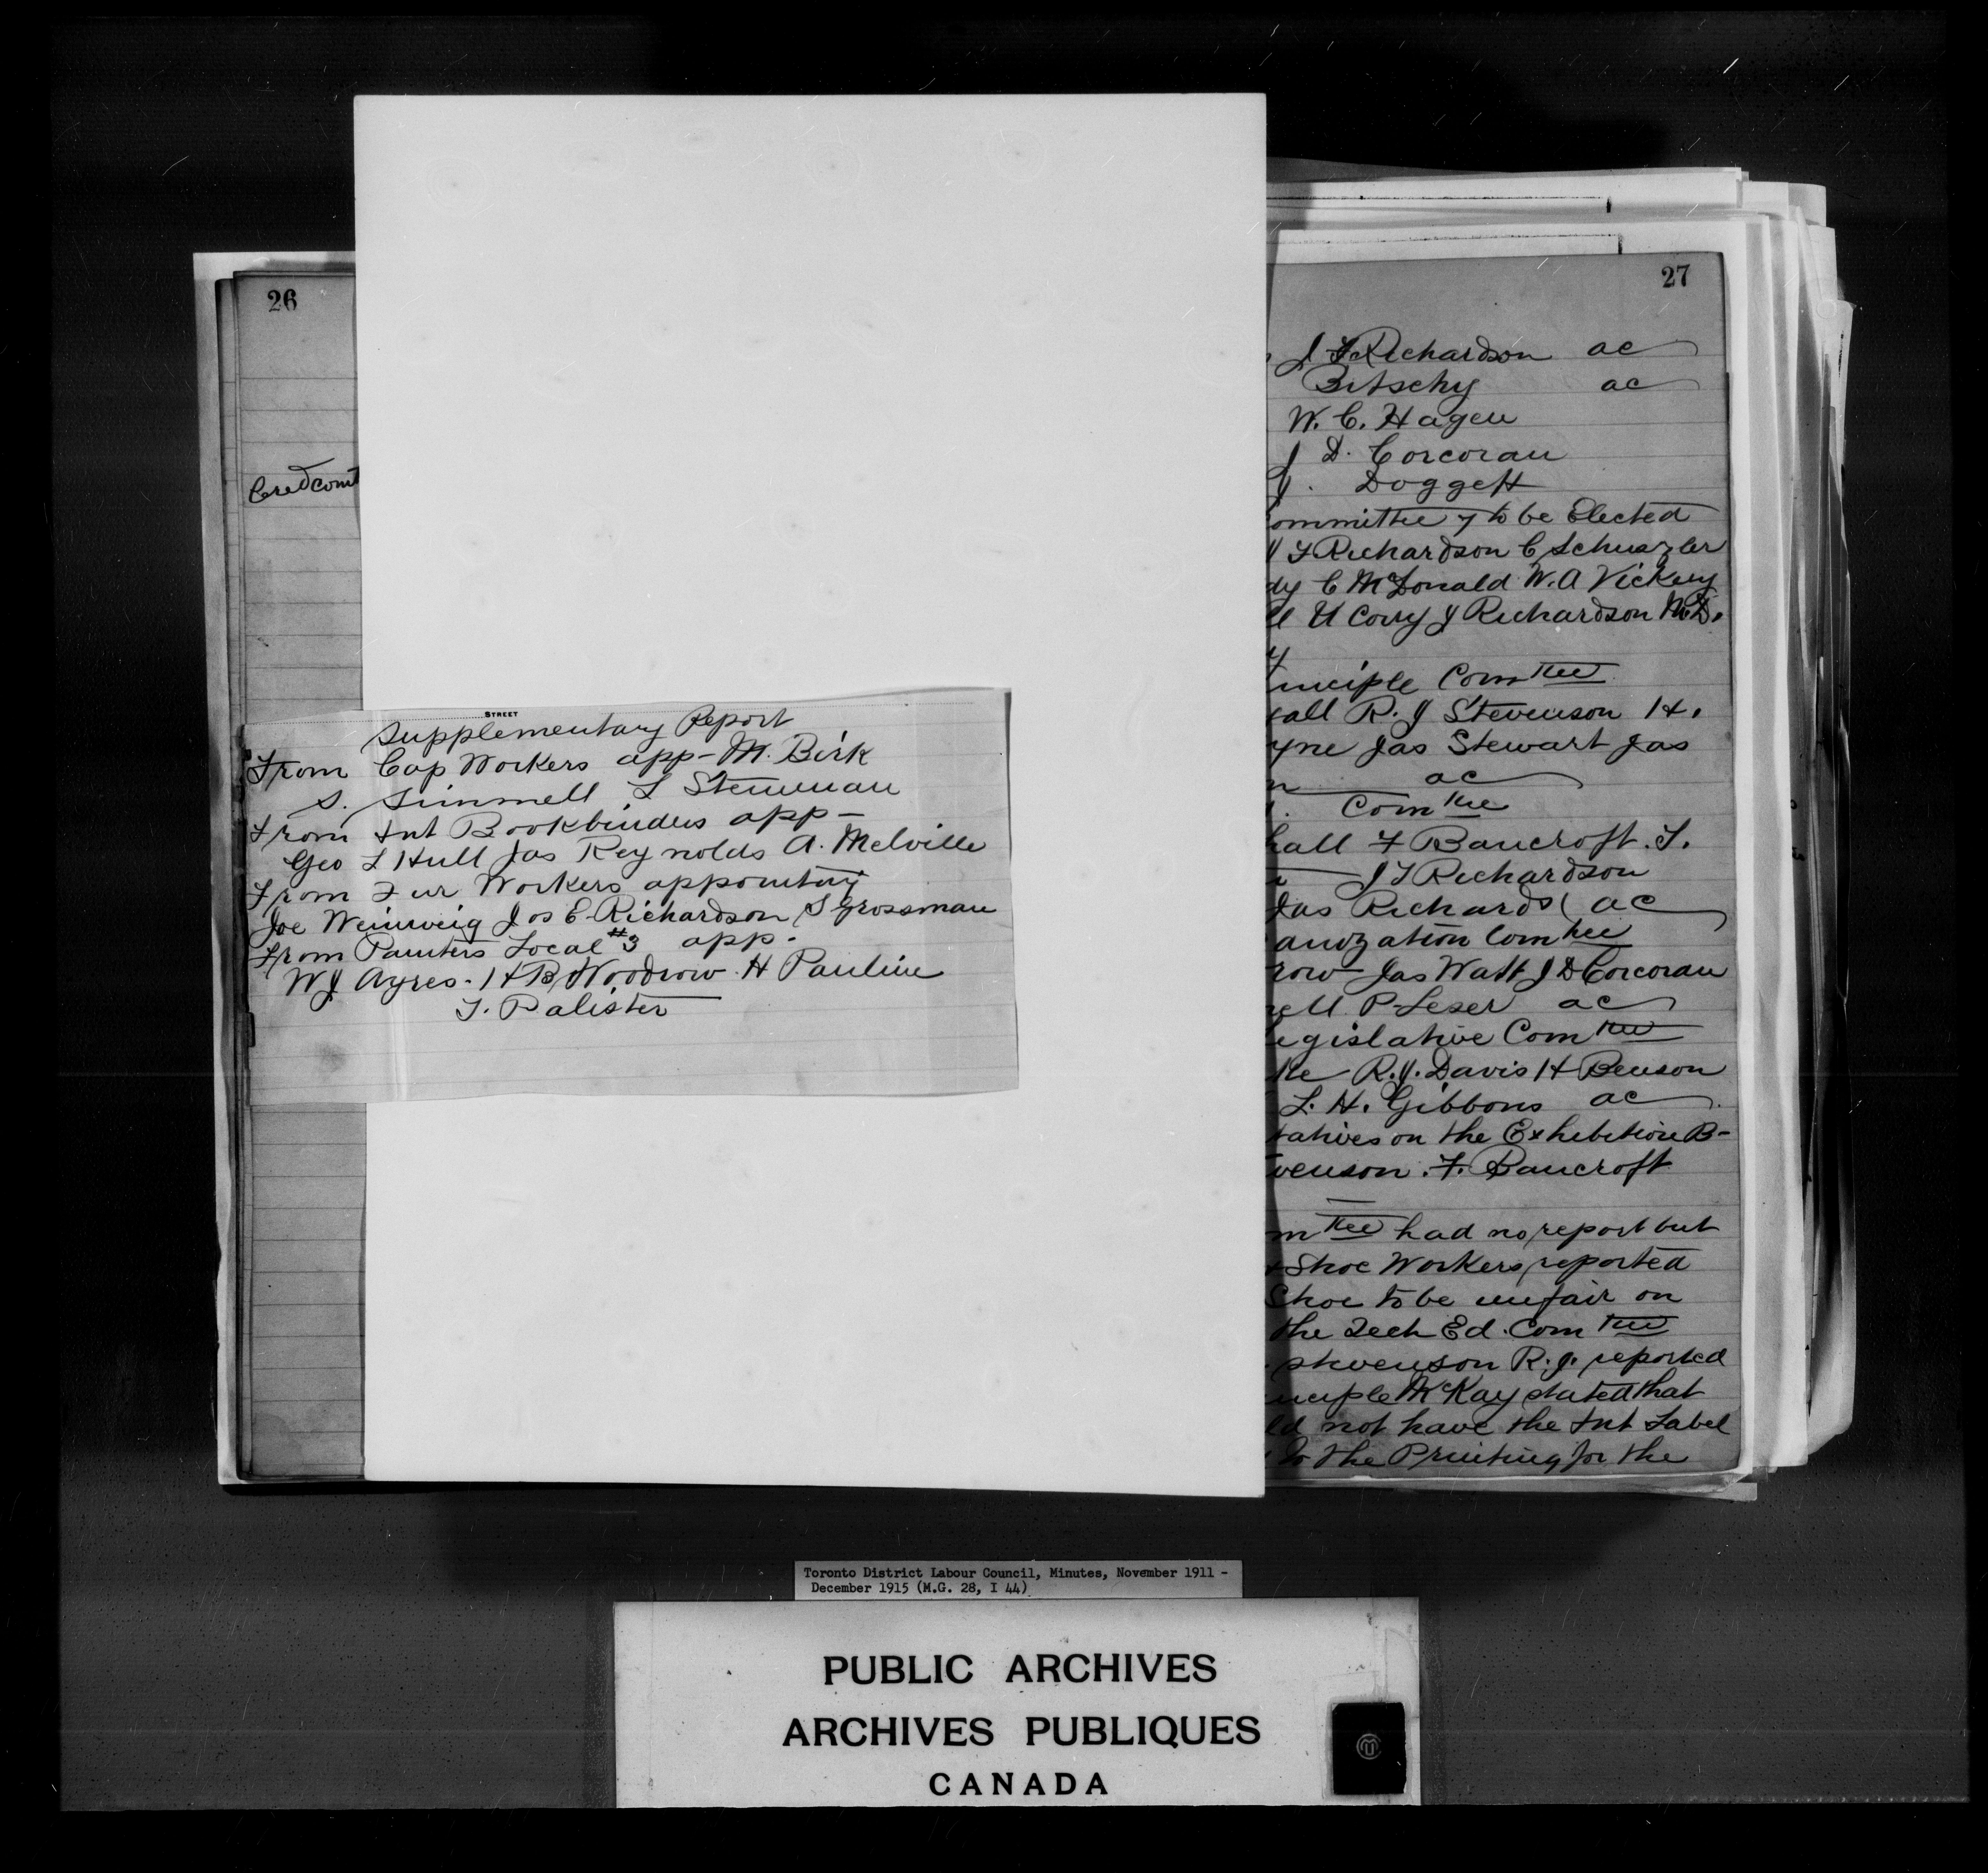 26
Cred comt
STREET
Supplementary Report
From Cap Workers app - M. Birk
S. Simmell L Steinman
From Int Bookbinders app -
Geo L Hull Jas Reynolds A. Melville
From Fur Workers appointing
Joe Weinweig Jos E. Richardson S Grossman
From Painters Local #3 app -
W J Ayres - H B Woodrow - H Pauline
T. Palister
27
J F Richardson ac
Bitschy ac
W. C. Hagen
J D. Corcoran
J. Doggett
ommittee 7 to be Elected
F Richardson C Schuszler
dy C McDonald W. A Vickery
ll H Corry J Richardson M.D.
y
inciple Comttee
all R. J Stevenson H.
yne Jas Stewart Jas
n ac
Comttee
hall F Bancroft. T.
J F Richardson
Jas Richards ac
anization Comttee
row Jas Watt J D Corcoran
ell P Leser ac
egislative Comttee
ke R. J. Davis H Benson
L. H. Gibbons ac
tatives on the Exhibition B-
venson. F. Bancroft
mttee had no report but
+ Shoe Workers reported
Shoe to be unfair on
the Tech Ed. Comttee
Stevenson R. J. reported
inciple McKay stated that
ld not have the Int Label
to the Printing for the
Toronto District Labour Council, Minutes, November 1911 -
December 1915 (M.G. 28, I 44)
PUBLIC ARCHIVES
ARCHIVES PUBLIQUES
CANADA